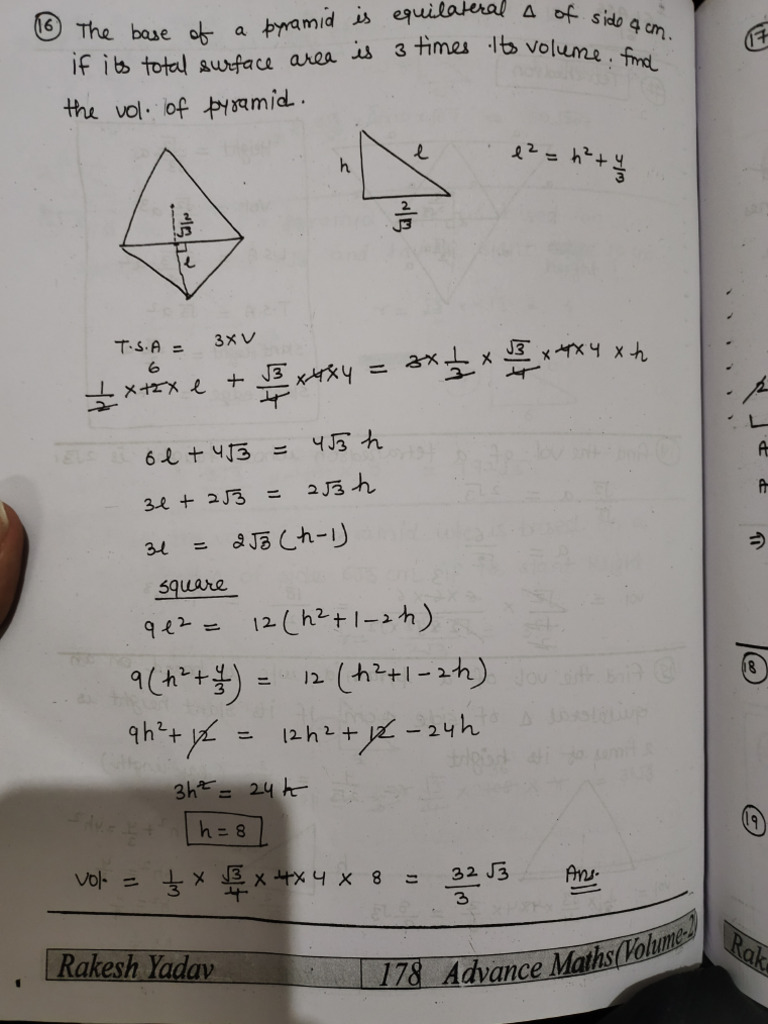 16 The base of a pyramid is equilateral Δ of side 4 cm.
if its total surface area is 3 times its volume. find
the vol. of pyramid.
h
l
2/√3
l² = h² + 4/3
2/√3
l
T.S.A = 3×V
6
1/2 × 12 × l + √3/4 × 4×4 = 3× 1/3 × √3/4 × 4×4 × h
6l + 4√3 = 4√3 h
3l + 2√3 = 2√3 h
3l = 2√3 (h-1)
square
9l² = 12 (h²+1-2h)
9(h²+4/3) = 12 (h²+1-2h)
9h²+12 = 12h²+12-24h
3h² = 24h
h = 8
vol. = 1/3 × √3/4 × 4×4 × 8 = 32/3 √3 Ans.
Rakesh Yadav 178 Advance Maths(Volume-2)
17
A
A
⇒
18
19
Rak